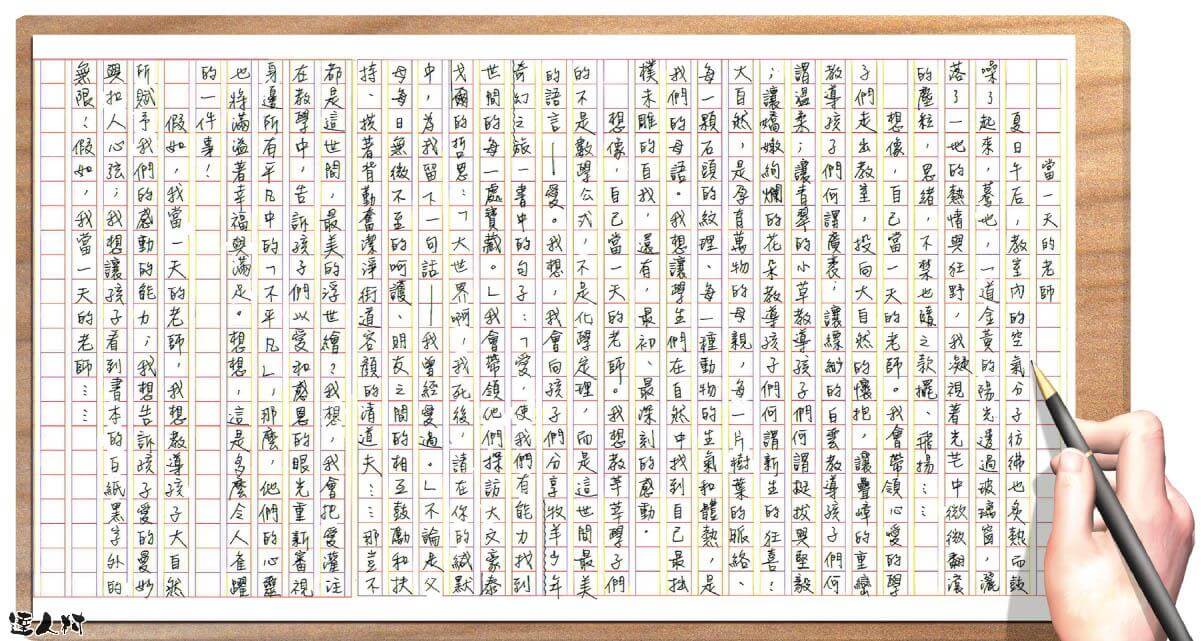 當一天的老師
夏日午后，教室內的空氣分子彷彿也炙熱而鼓
噪了起來，驀地，一道金黃的陽光透過玻璃窗，灑
落了一地的熱情與狂野，我凝視著光芒中微微翻滾
的塵粒，思緒，不禁也隨之款擺、飛揚……
想像，自己當一天的老師。我會帶領心愛的學
子們走出教室，投向大自然的懷抱，讓疊嶂的重巒
教導孩子們何謂廣袤，讓縹緲的白雲教導孩子們何
謂溫柔；讓青翠的小草教導孩子們何謂挺拔與堅毅
；讓嬌嫩絢爛的花朵教導孩子們何謂新生的狂喜！
大自然，是孕育萬物的母親，每一片樹葉的脈絡、
每一顆石頭的紋理、每一種動物的生氣和體熱，是
我們的母語。我想讓學生們在自然中找到自己最拙
樸未雕的自我，還有，最初、最深刻的感動。
想像，自己當一天的老師。我想教莘莘學子們
的不是數學公式，不是化學定理，而是這世間最美
的語言——愛。我想，我會向孩子們分享牧羊少年
奇幻之旅一書中的句子：「愛，使我們有能力找到
世間的每一處寶藏。」我會帶領他們探訪大文豪泰
戈爾的哲思：「大世界啊，我死後，請在你的緘默
中，為我留下一句話——我曾經愛過。」不論是父
母每日無微不至的呵護、朋友之間的相互鼓勵和扶
持、揹著背勤奮潔淨街道容顏的清道夫……那豈不
都是這世間，最美的浮世繪？我想，我會把愛灌注
在教學中，告訴孩子們以愛和感恩的眼光重新審視
身邊所有平凡中的「不平凡」，那麼，他們的心靈
也將滿溢著幸福與滿足。想想，這是多麼令人雀躍
的一件事！
假如，我當一天的老師，我想教導孩子大自然
所賦予我們的感動的能力；我想告訴孩子愛的曼妙
與扣人心弦；我想讓孩子看到書本的白紙黑字外的
無限！假如，我當一天的老師……
達人村